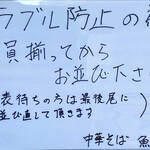 ラブル防止の
員揃ってから
お並び下さ
表待ちの方は最後尾に
並び直して頂きます
中華そば 魚